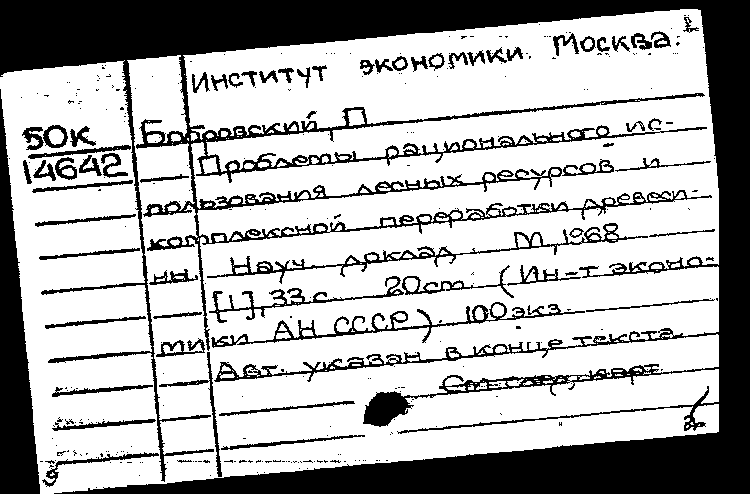 Институт экономики. Москва.
БОК
14642
Бобровский, П
Проблемы рационального ис-
пользования лесных ресурсов и
комплексной переработки древеси-
ны. Науч. доклад. М, 1968
[1], 33 с. 20 cm. (Ин-т эконо-
мики АН СССР). 100 экз.
Авт. указан в конце текста.
См. след. карт